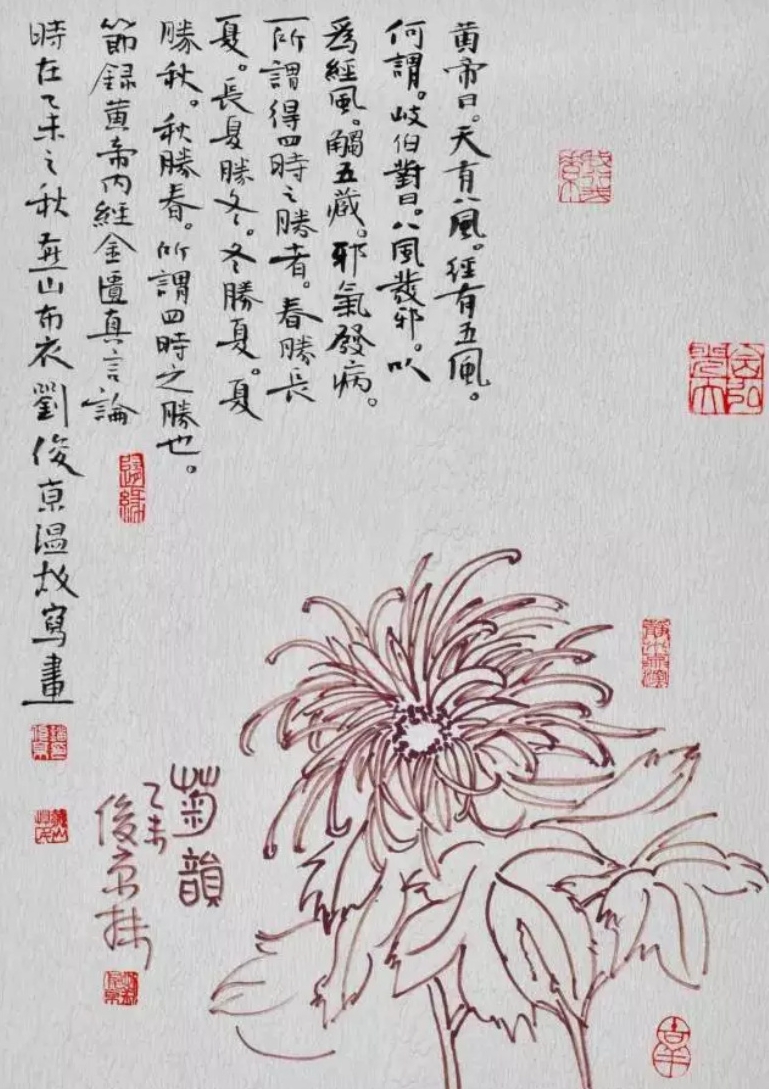 黄帝曰。天有八風。經有五風。
何謂。岐伯對曰。八風發邪。以
爲經風。觸五藏。邪氣發病。
所謂得四時之勝者。春勝長
夏。長夏勝冬。冬勝夏。夏
勝秋。秋勝春。所謂四時之勝也。
節録黄帝内經金匱真言論
時在乙未之秋燕山布衣劉俊京温故寫畫
隨緣
菊韻
乙未
俊京